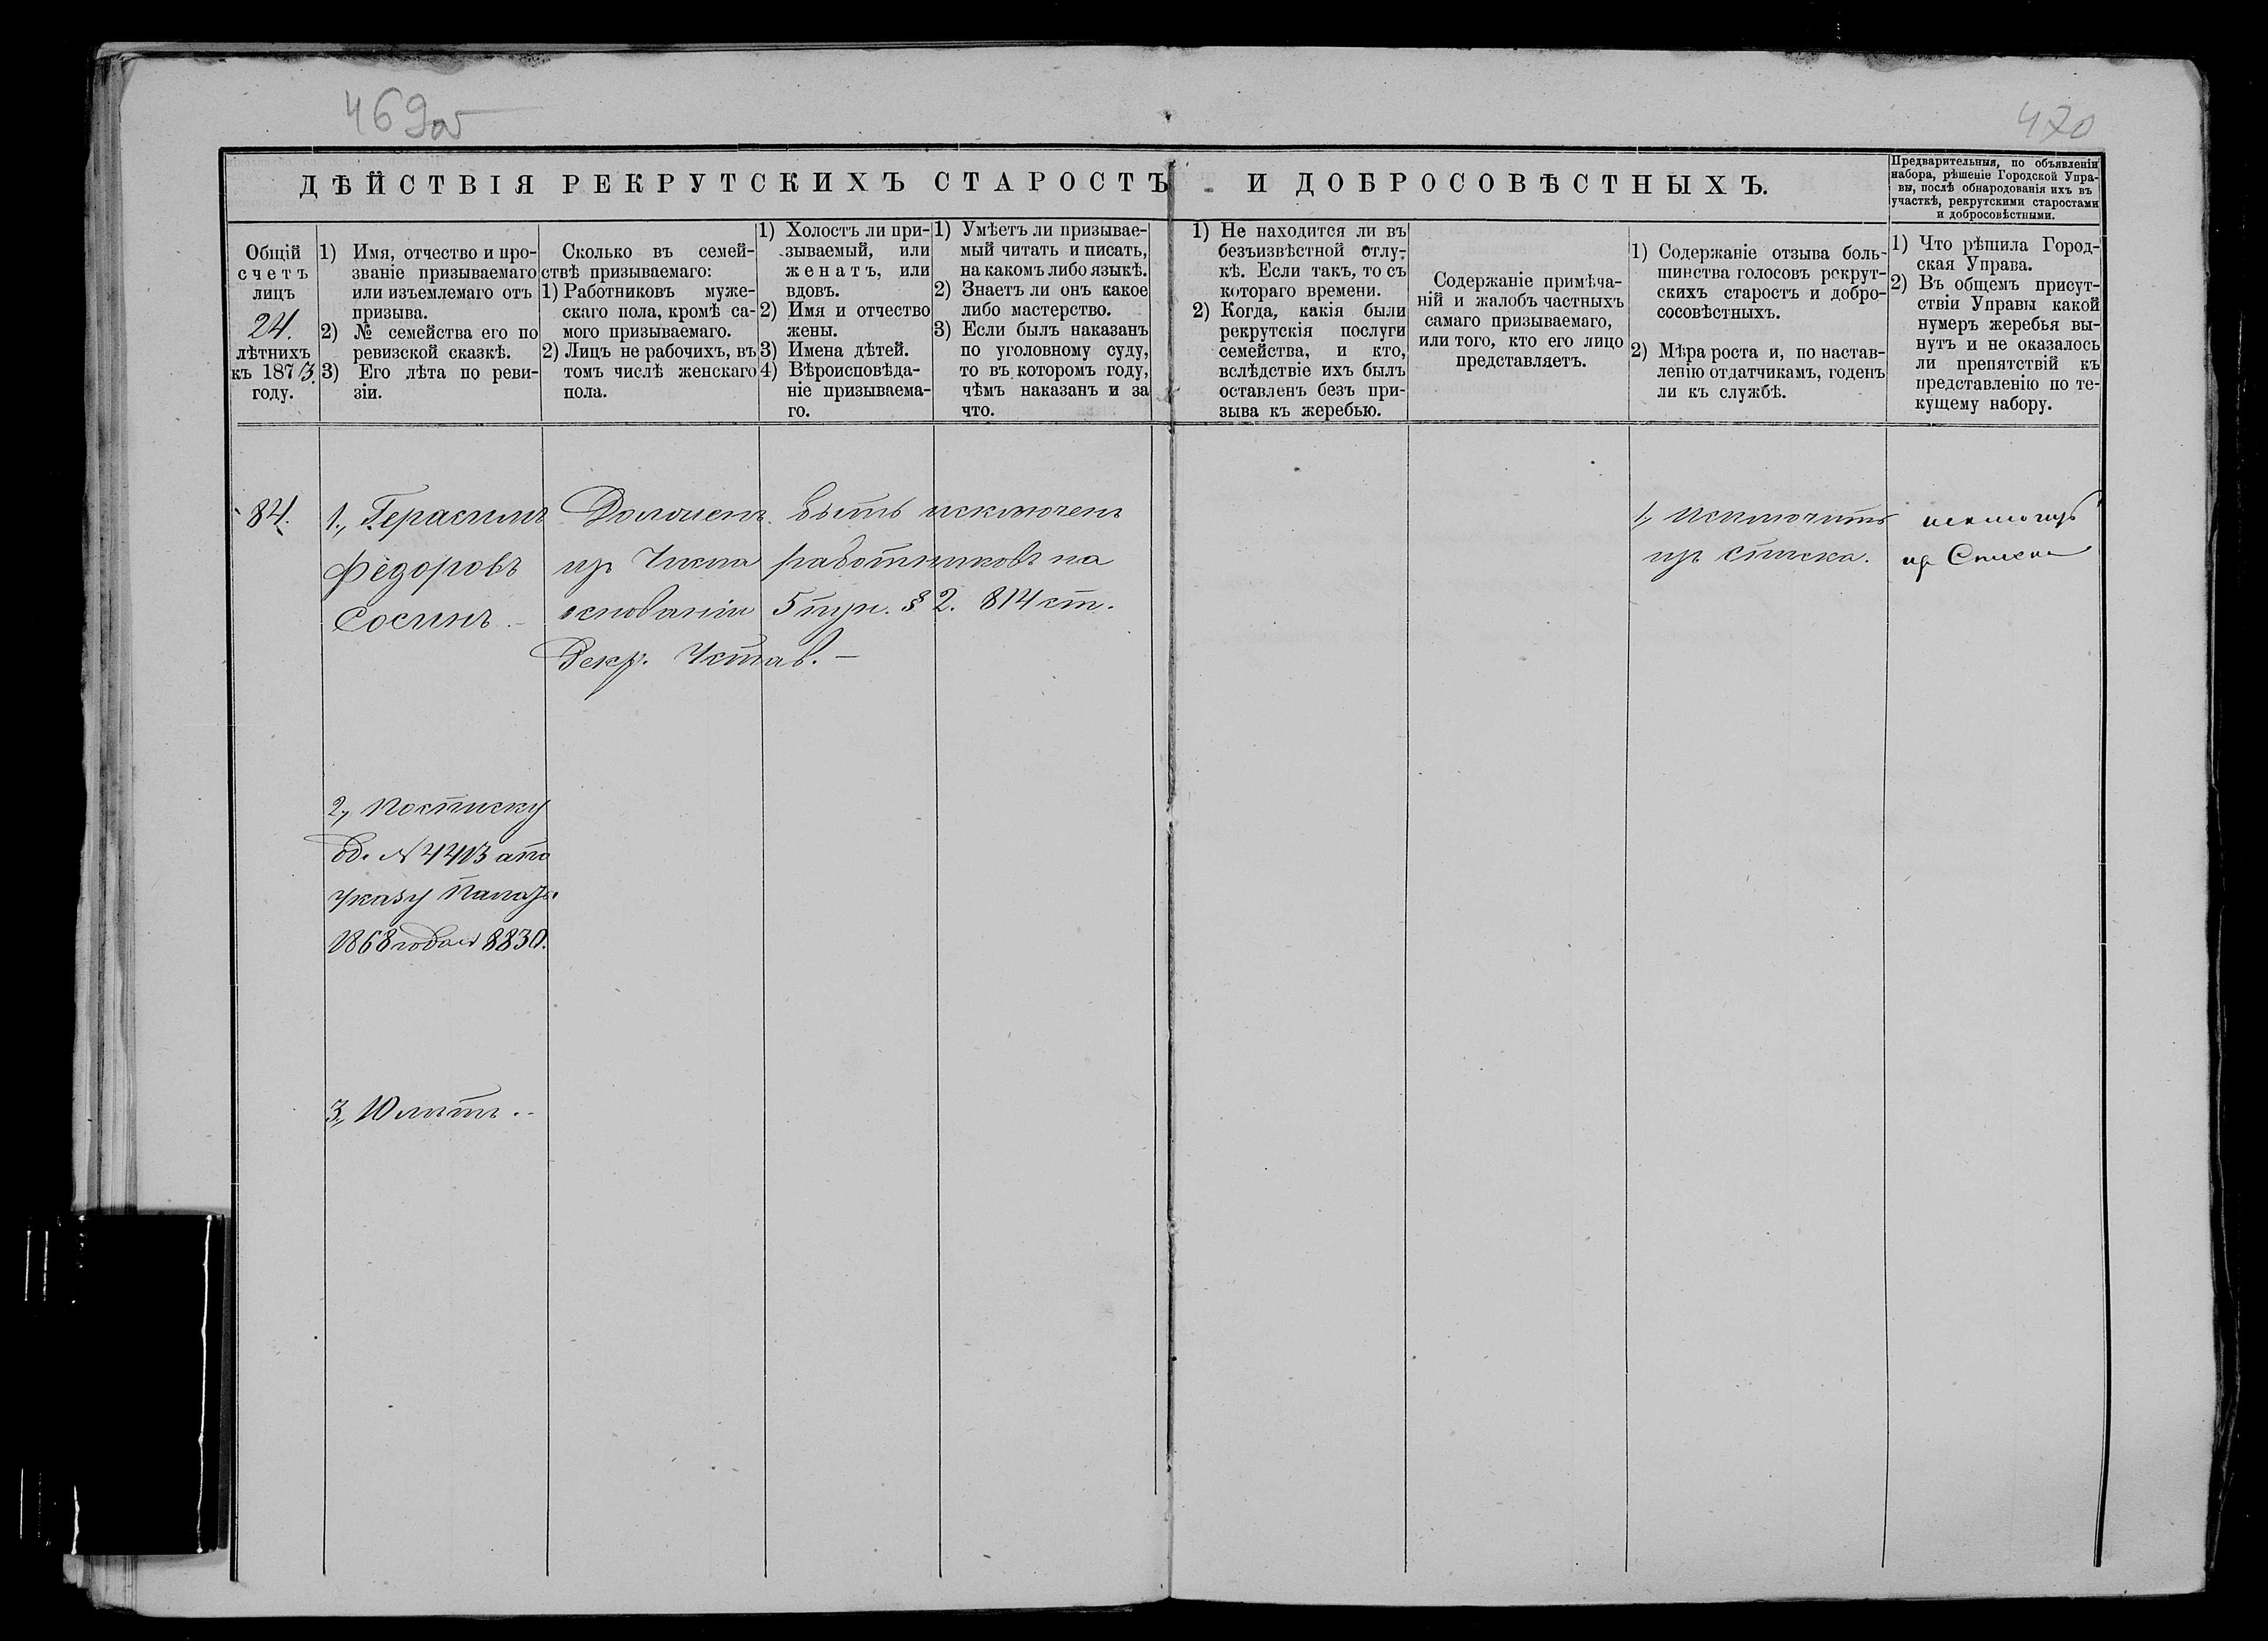 469об
470
ДѢЙСТВІЯ РЕКРУТСКИХЪ СТАРОСТЪ И ДОБРОСОВѢСТНЫХЪ.
Предварительныя, по объявленіи
набора, рѣшеніе Городской Упра-
вы, послѣ обнародованія ихъ въ
участкѣ, рекрутскими старостами
и добросовѣстными.
Общій
счетъ
лицъ
24.
лѣтнихъ
къ 1873.
году.
1) Имя, отчество и про-
званіе призываемаго
или изъемлемаго отъ
призыва.
2) № семейства его по
ревизской сказкѣ.
3) Его лѣта по реви-
зіи.
Сколько въ семей-
ствѣ призываемаго:
1) Работниковъ муже-
скаго пола, кромѣ са-
мого призываемаго.
2) Лицъ не рабочихъ, въ
томъ числѣ женскаго
пола.
1) Холостъ ли при-
зываемый, или
женатъ, или
вдовъ.
2) Имя и отчество
жены.
3) Имена дѣтей.
4) Вѣроисповѣда-
ніе призываема-
го.
1) Умѣетъ ли призывае-
мый читать и писать,
на какомъ либо языкѣ.
2) Знаетъ ли онъ какое
либо мастерство.
3) Если былъ наказанъ
по уголовному суду,
то въ которомъ году,
чѣмъ наказанъ и за
что.
1) Не находится ли въ
безъизвѣстной отлу-
кѣ. Если такъ, то съ
котораго времени.
2) Когда, какія были
рекрутскія послуги
семейства, и кто,
вслѣдствіе ихъ былъ
оставленъ безъ при-
зыва къ жеребью.
Содержаніе примѣча-
ній и жалобъ частныхъ
самаго призываемаго,
или того, кто его лицо
представляетъ.
1) Содержаніе отзыва боль-
шинства голосовъ рекрут-
скихъ старостъ и добро-
сосовѣстныхъ.
2) Мѣра роста и, по настав-
ленію отдатчикамъ, годенъ
ли къ службѣ.
1) Что рѣшила Город-
ская Управа.
2) Въ общемъ присут-
ствіи Управы какой
нумеръ жеребья вы-
нутъ и не оказалось
ли препятствій къ
представленію по те-
кущему набору.
84.
1., Герасимъ
Федоровъ
Сосинъ.
Долженъ быть исключенъ
изъ Числа работниковъ на
основаніи 5 пун. § 2. 814 ст.
Рекр. Устав. —
1, Исключить
изъ списка.
исключить
изъ Списка
2, по списку
об. № 4413 а по
указу Палаты
1868 года № 8830.
3, 10 лѣтъ. -